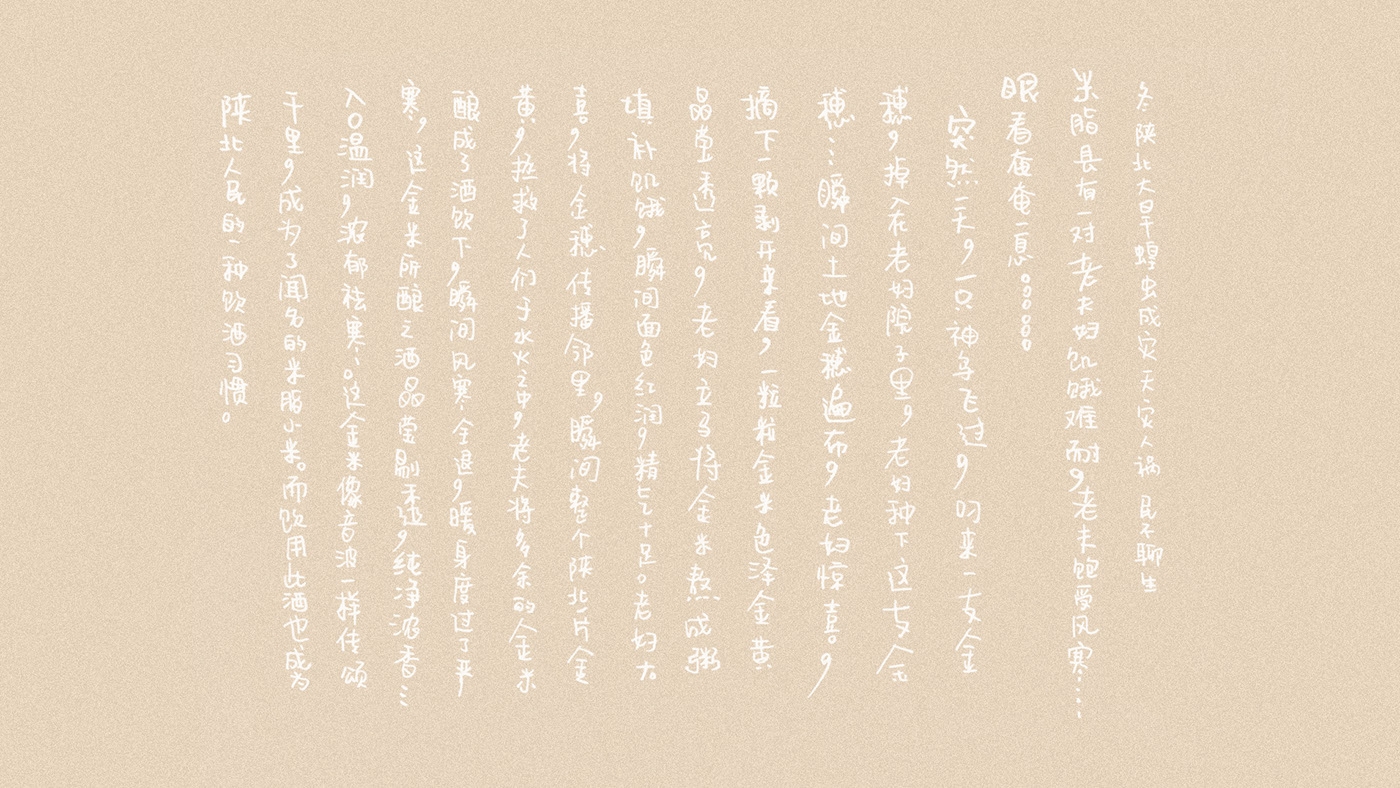 冬陕北大旱蝗虫成灾天灾人祸民不聊生
米脂县有一对老夫妇饥饿难耐，老夫饱受风寒……
眼看奄奄一息。。。。。。
突然一天，一只神鸟飞过，叼来一支金
穗，掉入在老妇院子里，老妇种下这支金
穗…瞬间土地金穗遍布，老妇惊喜。，
摘下一颗剥开来看，一粒粒金米色泽金黄
晶莹透亮，老妇立马将金米熬成粥
填补饥饿，瞬间面色红润，精气十足。老妇大
喜，将金穗传播邻里，瞬间整个陕北一片金
黄，拯救了人们于水火之中，老夫将多余的金米
酿成了酒饮下，瞬间风寒全退，暖身度过了严
寒，这金米所酿之酒晶莹剔透，纯净浓香…
入口温润，浓郁祛寒…。这金米像音波一样传颂
千里，成为了闻名的米脂小米。而饮用此酒也成为
陕北人民的一种饮酒习惯。